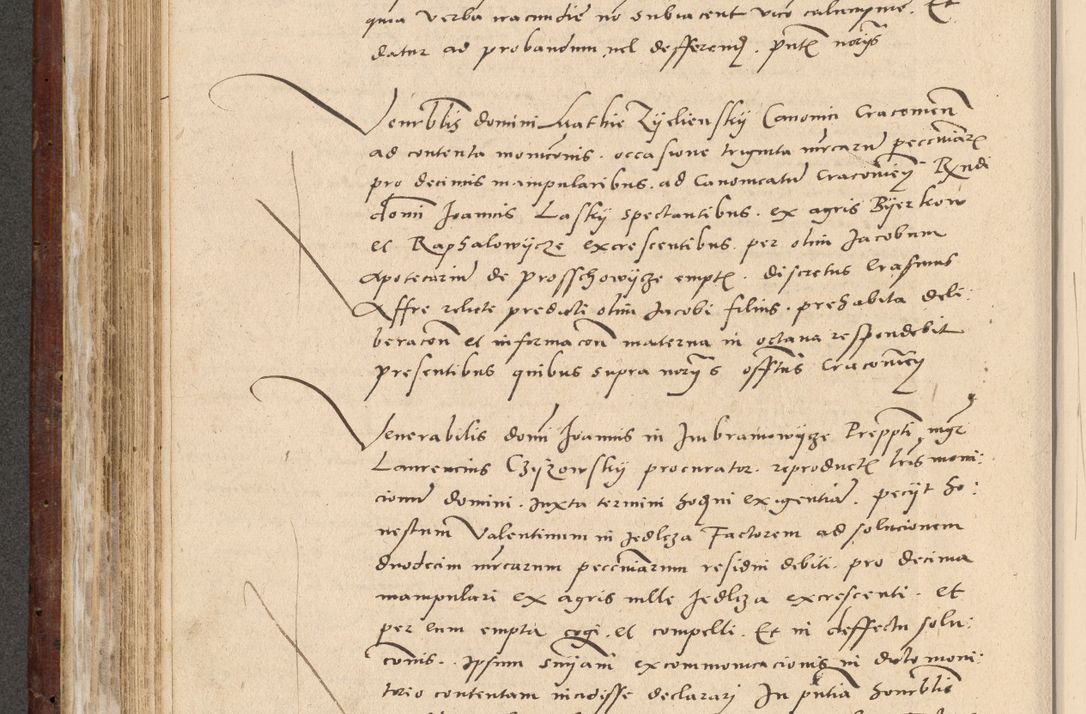 quia verba iracundie no subiacent vicio calumpnie. Et
datur ad probandum vel defferend. pntˉ norijs
Venerblis domini Mathie Zijelienskij Canonici Cracouien
ad contenta moniconis. occasione triginta mrcarum pecciniar
pro decimis manipularibus. ad Canonicatu Cracouien Rndi
domi Joannis Laskij spectantibus. ex agris Bijerkow
et Raphalowijcze excrescentibus. per olim Jacobum
Apotecarium de Prosschowijcze empt. discretus Erasmus
Affre relicte predicti olim Jacobi filius. prehabita deli:
beracon et informacon materna in octava respondebit
presentibus quibus supra norijs offtus Cracouien
Venerabilis domi Joannis in Imbramowijcze Preppti mgr
Laurencius Czijzowskij procurator. reproductˉ lris moni:
cionu domini. Juxta termini hodni exigentia. pecijt ho:
nestum Valentinum in Jedlcza Factorem ad solucionem
duodecim mrcarum pecciniarum residui debiti. pro decima
manipulari ex agris ville Jedlcza excrescenti. et
per eum empta cogi. et compelli. Et in deffectu solu:
conis. ipsum sniam excommonicacionis in dicto moni:
torio contentam incidisse declarari In pntia honorblis